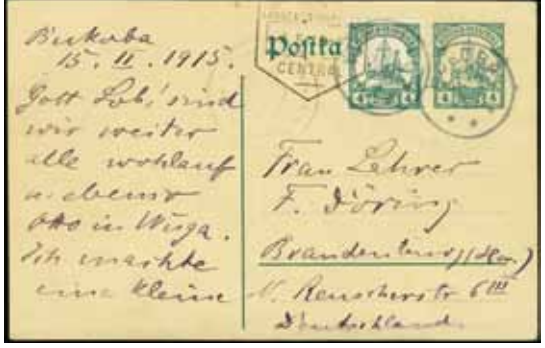 Bukoba
15. II. 1915.
Gott Lob! sind
wir weiter
alle wohlauf
u. ebenso
Otto in Wuga.
Ich machte
eine kleine
Postka
CENTRE
4 4
4 4
Frau Lehrer
F. Döring
Brandenburg
N. 6 III
Deutschland